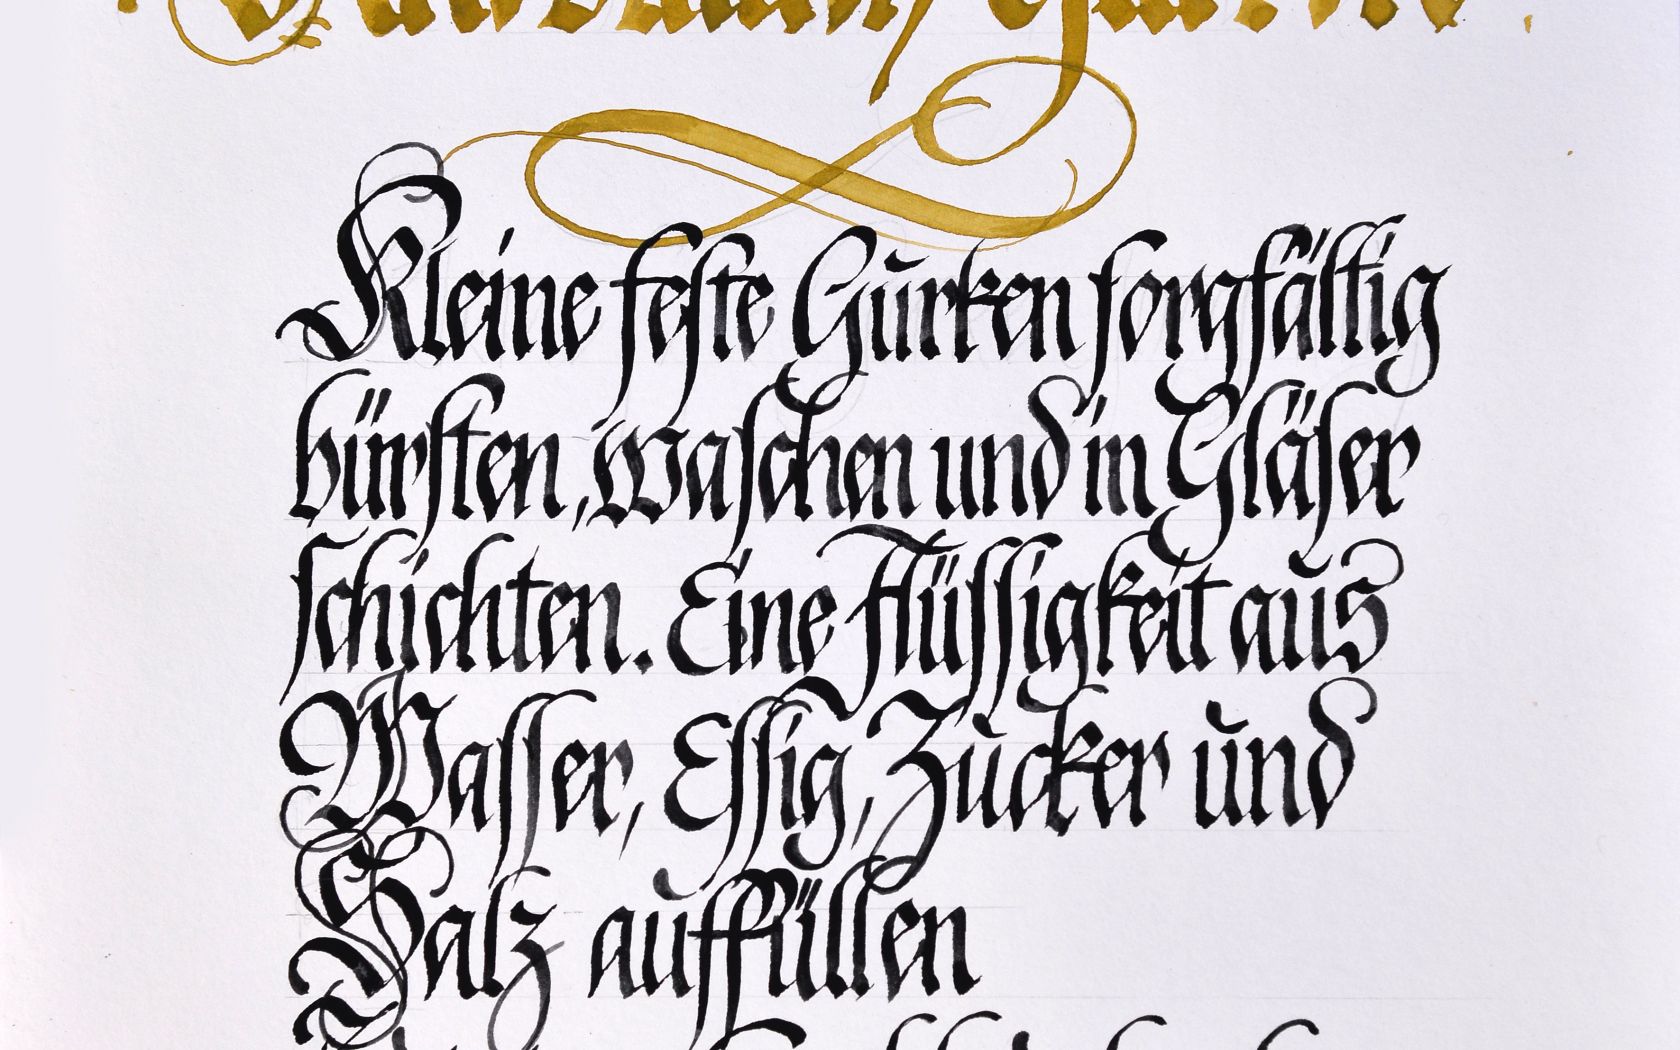 Kleine feste Gurken sorgfältig
bürsten, waschen und in Gläser
schichten. Eine Flüssigkeit aus
Wasser, Essig, Zucker und
Salz auffüllen